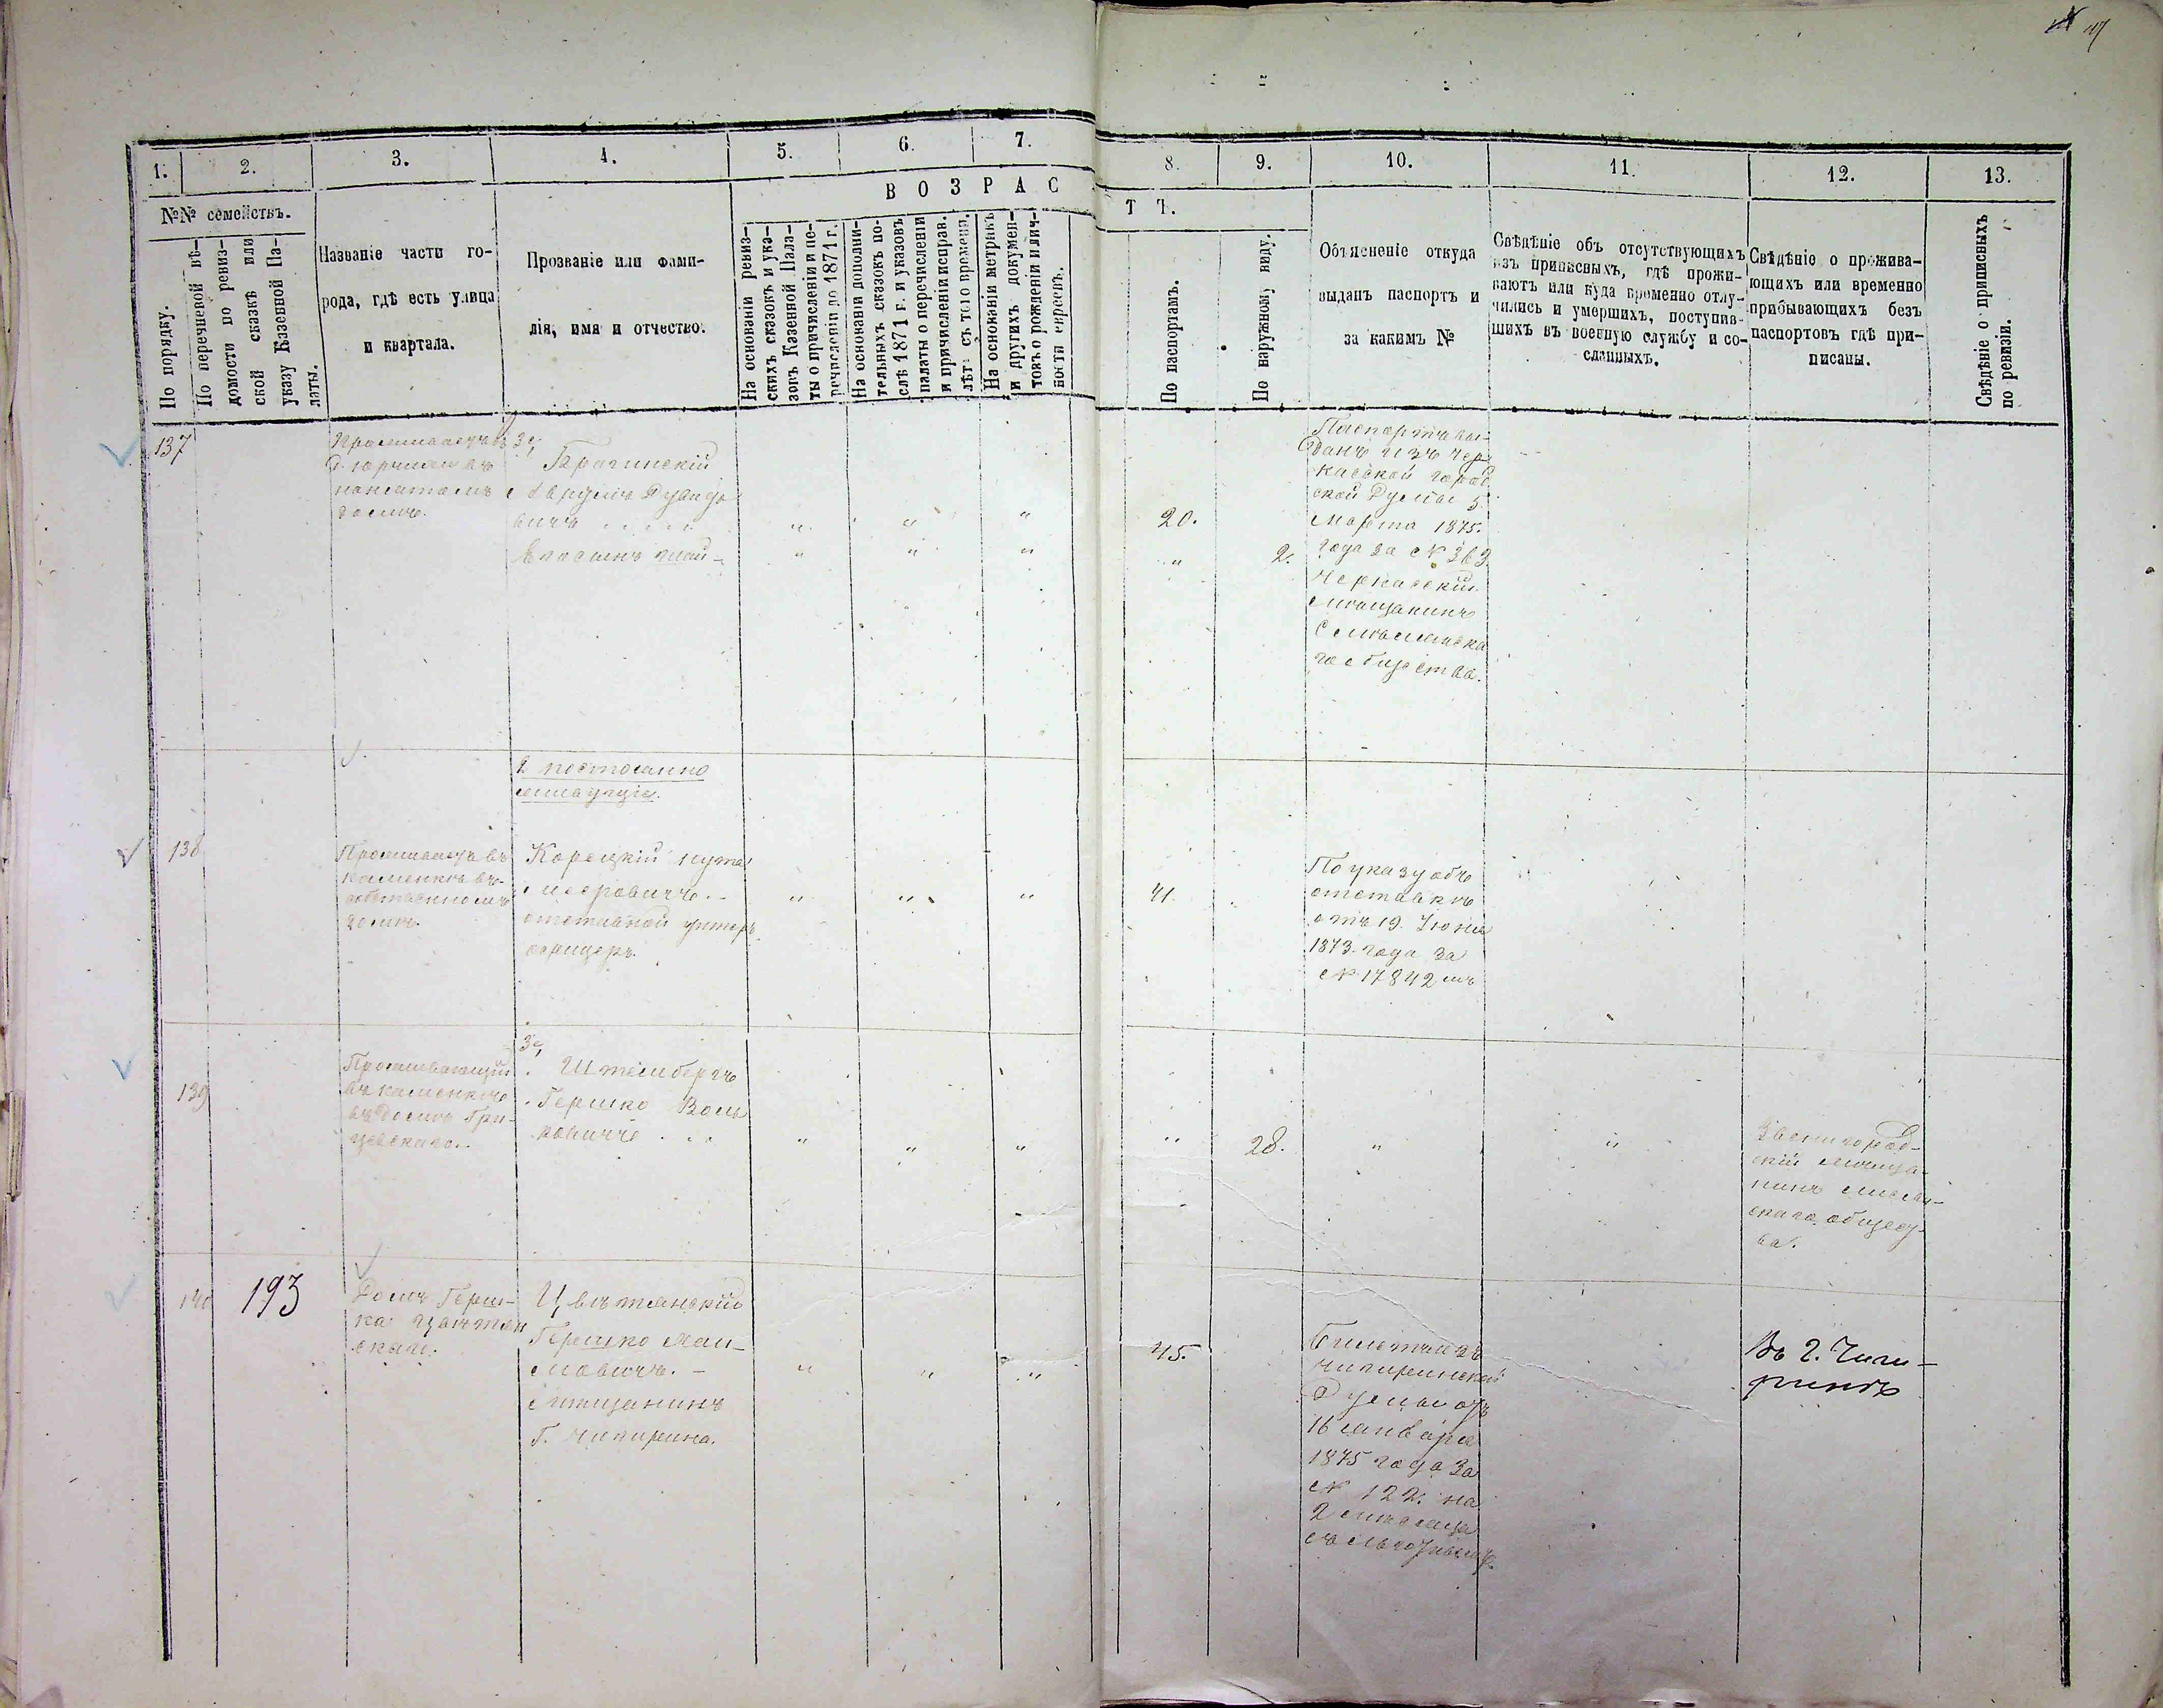 1.
2.
3.
4.
5.
6.
7.
8.
9.
10.
11.
12.
13.
№№ семействъ.
По порядку.
По перечневой вѣ-
домости по ревиз-
ской сказкѣ или
указу Казенной Па-
латы.
Названіе части го-
рода, гдѣ есть улица
и квартала.
Прозваніе или фами-
лія, имя и отчество.
ВОЗРАС
ТЪ.
На основаніи ревиз-
скихъ сказокъ и ука-
зовъ Казенной Пала-
ты о причисленіи и пе-
речисленіи до 1871 г.
На основаніи дополни-
тельныхъ сказокъ по-
слѣ 1871 г. и указовъ
палаты о перечисленіи
и причисленіи исправ.
лѣтъ съ того времени.
На основаніи метрикъ
и другихъ докумен-
товъ о рожденіи и лич-
ности евреевъ.
По паспортамъ.
По наружному виду.
Объясненіе откуда
выданъ паспортъ и
за какимъ №
Свѣдѣніе объ отсутствующихъ
изъ приписныхъ, гдѣ прожи-
ваютъ или куда временно отлу-
чились и умершихъ, поступив-
шихъ въ военную службу и со-
сланныхъ.
Свѣдѣніе о прожива-
ющихъ или временно
прибывающихъ безъ
паспортовъ гдѣ при-
писаны.
Свѣдѣніе о приписныхъ
по ревизіи.
137
Проживаетъ въ
наемномъ
домѣ.
Брагинскій
вичъ
" " "
20.
" " " "
2.
Паспортъ вы-
данъ изъ Чер-
касской город
ской Думы 5
марта 1875.
года за № 363
Черкасскій
мѣщанинъ
Смѣлянска
го общества.
постоянно
живущіе.
138
Проживаетъ въ
Каменкѣ въ
собственномъ
домѣ.
Корецкій
отставной унтеръ
офицеръ.
" " "
41.
По указу объ
отставкѣ
отъ 19. Іюня
1873. года за
№ 17842 мъ
139
Проживающій
въ Каменкѣ
въ домѣ Гри-
цевскаго.
Штемберъ
Гершко Воль
ковичъ
" " "
"
28.
" "
Звенигород-
скій мѣща-
нинъ
скаго общест-
ва.
140
193
Домъ Герш-
ка Цвѣтян
скаго.
Цвѣтянскій
Гершко Хаи-
мовичъ. -
мѣщанинъ
г. Чигирина.
" " "
45.
Билетъ изъ
Чигиринской
Думы отъ
16 января
1875 года за
№ 122. на
2 мѣсяца
Въ г. Чиги-
ринѣ